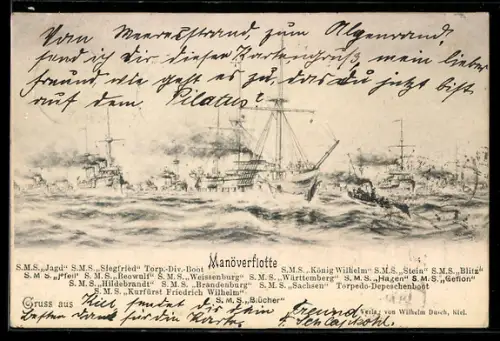 Vom Meeresstrand, zum Alpenrand,
send ich Dir diesen Kartengruß, mein lieber
Freund, wie geht es zu, das du jetzt bist
auf dem Pilatus?
Manöverflotte
S.M.S. „Jagd“ S.M.S. „Siegfried“ Torp.-Div.-Boot S.M.S. „König Wilhelm“ S.M.S. „Stein“ S.M.S. „Blitz“
S.M.S. „Pfeil“ S.M.S. „Beowulf“ S.M.S. „Weissenburg“ S.M.S. „Württemberg“ S.M.S. „Hagen“ S.M.S. „Gefion“
S.M.S. „Hildebrandt“ S.M.S. „Brandenburg“ S.M.S. „Sachsen“ Torpedo-Depeschenboot
S.M.S. „Kurfürst Friedrich Wilhelm“
S.M.S. „Blücher“
Gruss aus Kiel sendet dir dein Freund
Verlag von Wilhelm Dusch, Kiel.
Besten Dank für die Karte.